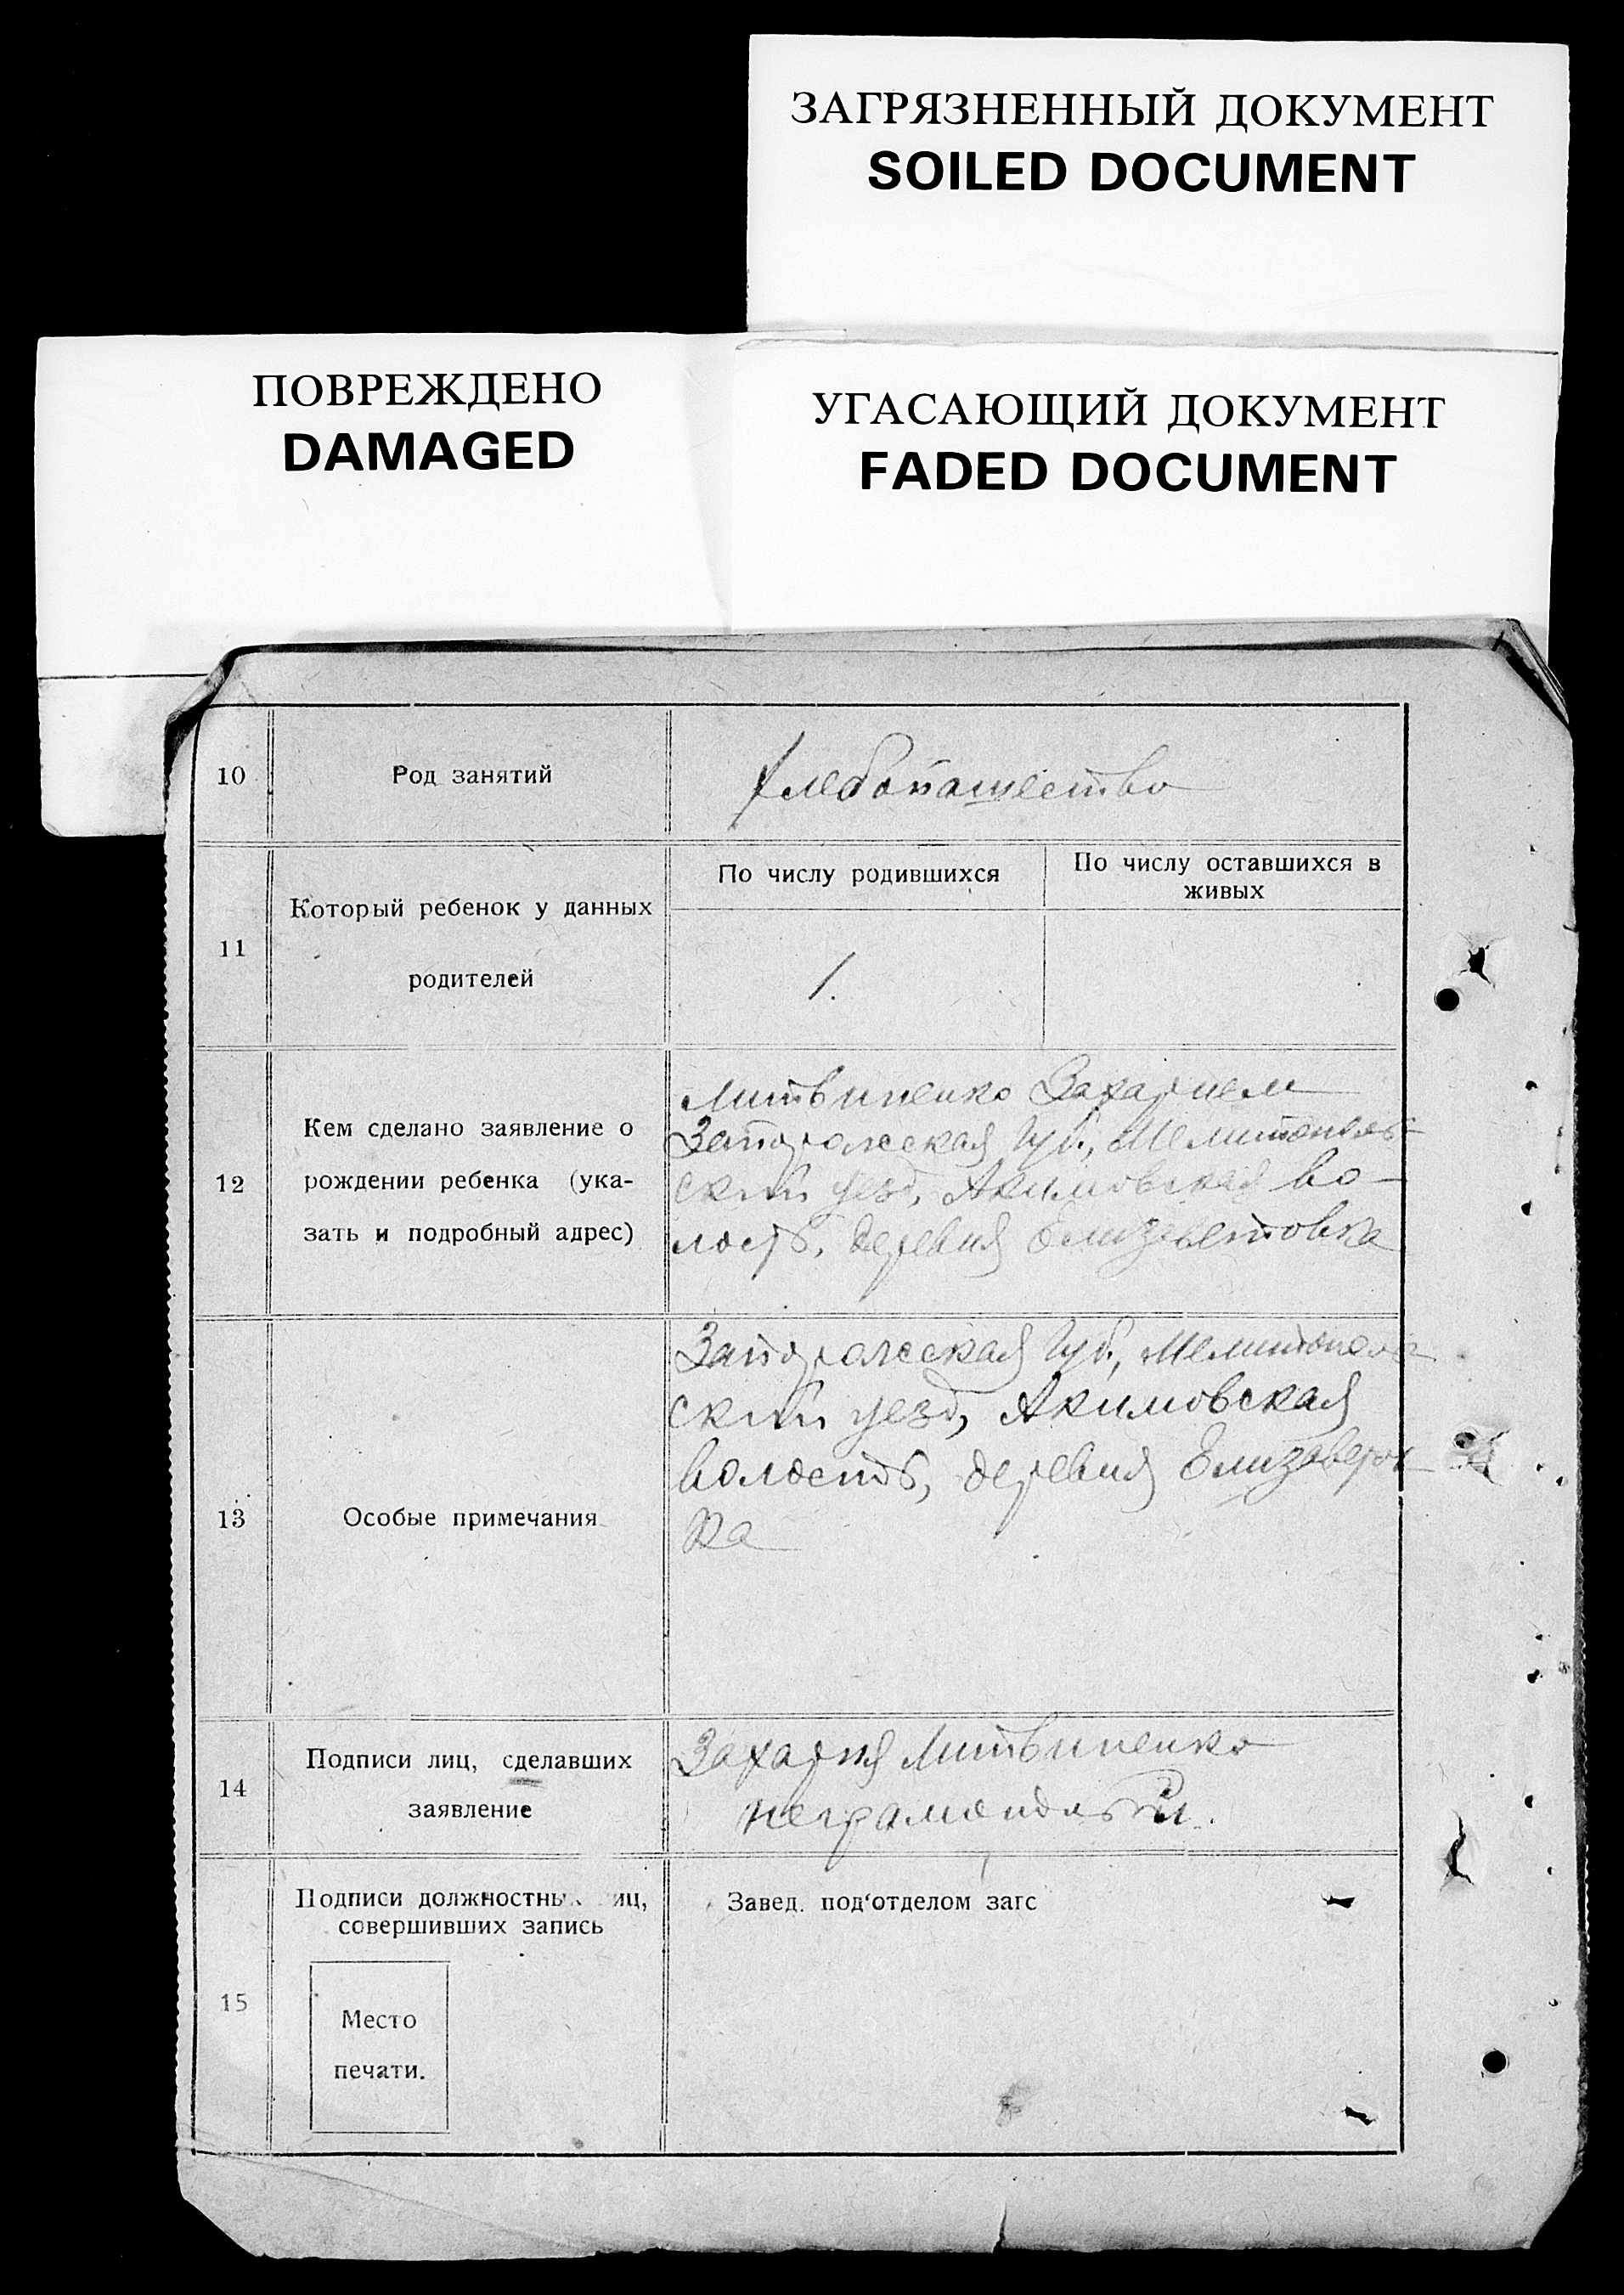 ЗАГРЯЗНЕННЫЙ ДОКУМЕНТ
SOILED DOCUMENT
ПОВРЕЖДЕНО
DAMAGED
УГАСАЮЩИЙ ДОКУМЕНТ
FADED DOCUMENT
10
Род занятий
Хлебопашество
11
Который ребенок у данных
родителей
По числу родившихся
По числу оставшихся в
живых
1.
12
Кем сделано заявление о
рождении ребенка (ука-
зать и подробный адрес)
Литвиненко Захарием
Запорожская Губ., Мелитополь-
ский уезд, Акимовская во-
лость, деревня Елизаветовка
13
Особые примечания
Запорожская Губ., Мелитополь
ский уезд, Акимовская
волость, деревня
ка
14
Подписи лиц, сделавших
заявление
Захария Литвиненко
15
Подписи должностны иц,
совершивших запись
Место
печати.
Завед. под'отделом загс